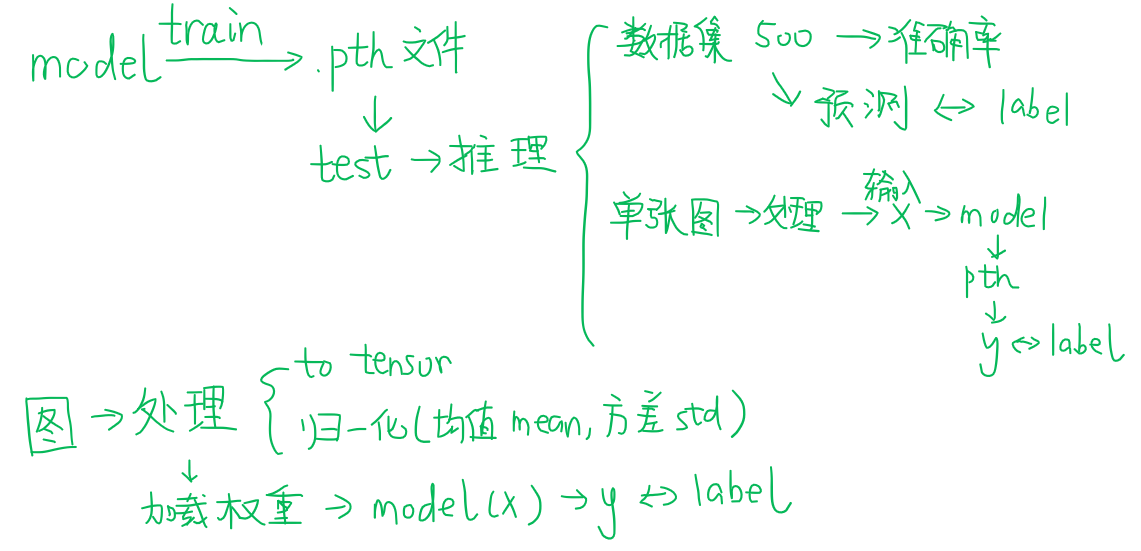 model train → .pth 文件
↓
test → 推理
数据集 500 → 准确率
↘ 预测 ↔ label
单张图 → 处理 → 输入 X → model
↓
pth
↓
y ↔ label
图 → 处理
to tensor
归一化(均值 mean, 方差 std)
↓
加载权重 → model(x) → y ↔ label